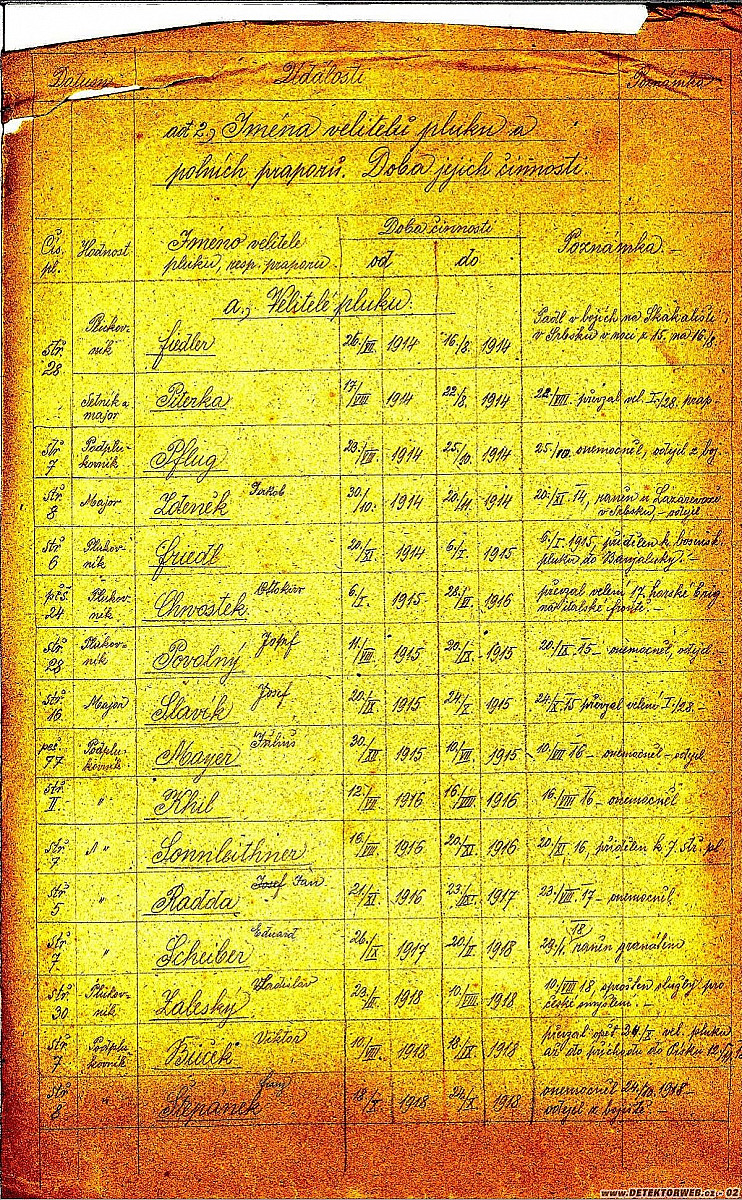 Datum Události Poznámka
ad 2, Jména velitelů pluku a
polních praporů. Doba jejich činnosti.
Čís. pl. Hodnost Jméno velitele pluku, resp. praporu. Doba činnosti od do Poznámka. -
a, Velitelé pluku.
stř. 28 Plukovník Fiedler 26./VII 1914 16./8. 1914 Padl v bojích na Skakališti v Srbsku v noci z 15. na 16./8.
Setník a major Piterka 17./VIII 1914 22./8. 1914 22./VIII. převzal vel. I./28. prap.
stř. 7 Podplukovník Pflug 23./VIII 1914 25./10. 1914 25./10. onemocněl, odjel z boj. -
stř. 8 Major Zdeněk Jakob 30./10. 1914 20./11. 1914 20./XI. 14, raněn u v Srbsku, - odjel
stř. 6 Plukovník Friedl 20./XI 1914 6./I. 1915 6./I. 1915, přidělen k pluku do Banjaluky. -
pěš. 24 Plukovník. Chwostek Ottokar 6./I. 1915 1916 převzal velení 17. horské brig. na italské frontě. -
stř. 28 Plukovník Povolný Josef 11./VIII. 1915 20./IX. 1915 20./IX 15 - onemocněl, odjel. -
stř. 16 Major Slavík Josef 20./IX 1915 24./X 1915 24./X 15 převzal velení I./28. -
peš. 77 Podplukovník. Mayer Julius 30./XII 1915 10./VII. 1915 10./VIII 16 - onemocněl - odjel
stř. II. " Khil 12./VII 1916 16./VIII 1916 16./VIII 16 - onemocněl
stř. 7 " Sonnleithner 16./VIII 1916 20./XI 1916 20./XI 16, přidělen k 7. stř. pl.
stř. 5 " Radda Josef Jan 21./XI 1916 23./VIII. 1917 23./VIII. 17 - onemocněl
stř. 7. " Scheiber Eduard 26./IX 1917 20./II 1918 18 raněn granátem
stř. 30 Plukovník Zaleský Vladislav 1918 10./VIII. 1918 10./VIII 18, sproštěn služby pro české smýšlení. -
stř. 7 Podplukovník Búček Viktor 10./VIII. 1918 18./IX 1918 převzal opět 24./X vel. pluku až do příchodu do Písku
stř. 8 " Štěpánek 18./X 1918 24./X 1918 onemocněl 24./10. 1918 - odjel z bojiště -
www.DETEKTORWEB.cz - OZ